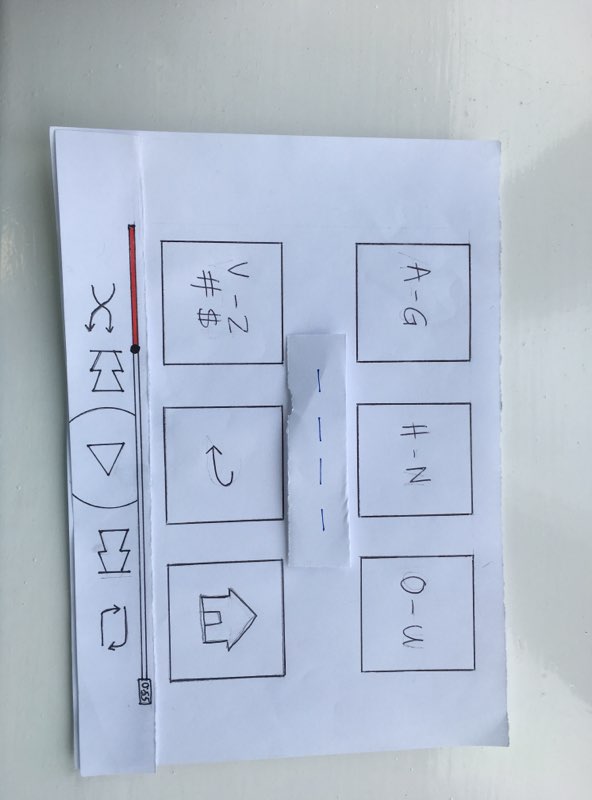 A-G
H-N
O-U
_ _ _ _
V-Z
# $
0:55